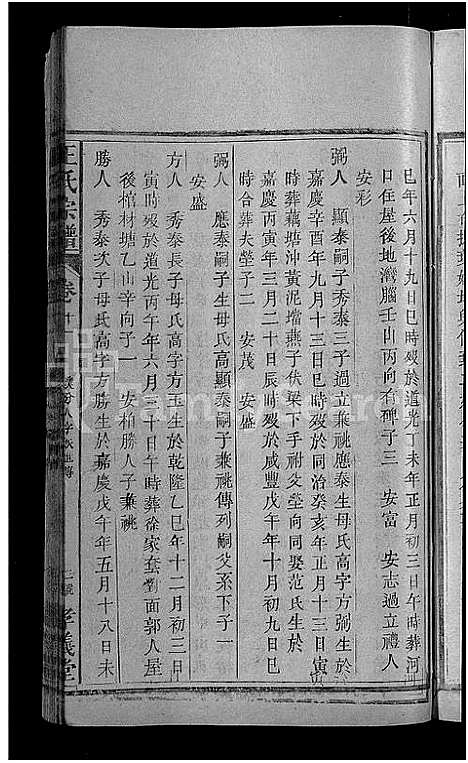 巳年六月十九日巳時歿於道光丁未年正月初三日午時葬河
口住屋後地灣腦壬山丙向有碑子三　安富　安志過立禮人
安彩
弼人　顯泰嗣子秀泰三子過立兼祧應泰生母氏高字方弼生於
嘉慶辛酉年九月十三日巳時歿於同治癸亥年正月十三日寅
時葬藕塘沖黃泥壋燕子伏梁下手祔父塋向同娶范氏生於
嘉慶丙寅年三月二十日辰時歿於咸豐戊午年十月初九日巳
時合葬夫塋子二　安茂　安盛
弼人　應泰嗣子生母氏高顯泰嗣子兼祧傳列嗣父系下子一
安盛
方人　秀泰長子母氏高字方玉生於乾隆乙巳年十二月初三日
寅時歿於道光丙午年六月二十日午時葬徐家坴對面郭人屋
後棺材塘乙山辛向子一　安柏勝人子兼祧
勝人　秀泰次子母氏高字方勝生於嘉慶戊午年五月十八日未
王氏宗譜
卷十
孝義堂